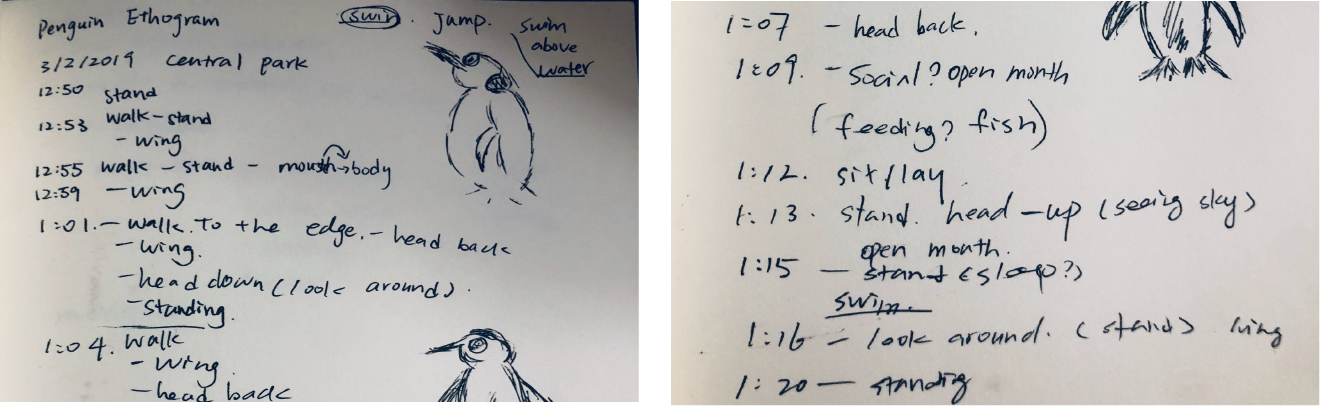 Penguin Ethogram
swim. Jump. swim
above
water
3/2/2019 central park
12:50 stand
12:53 walk-stand
- wing
12:55 walk - stand - mouth→body
12:59 - wing
1:01. - walk. To the edge. - head back
- wing.
- head down (look around).
- standing.
1:04. walk
- wing
- head back
1:07 - head back.
1:09. - Social? open month
(feeding? fish)
1:12. sit/lay
1:13. stand. head-up (seeing sky)
open month.
1:15 - stand (sleep?)
swim.
1:16 - look around. (stand) wing
1:20 - standing